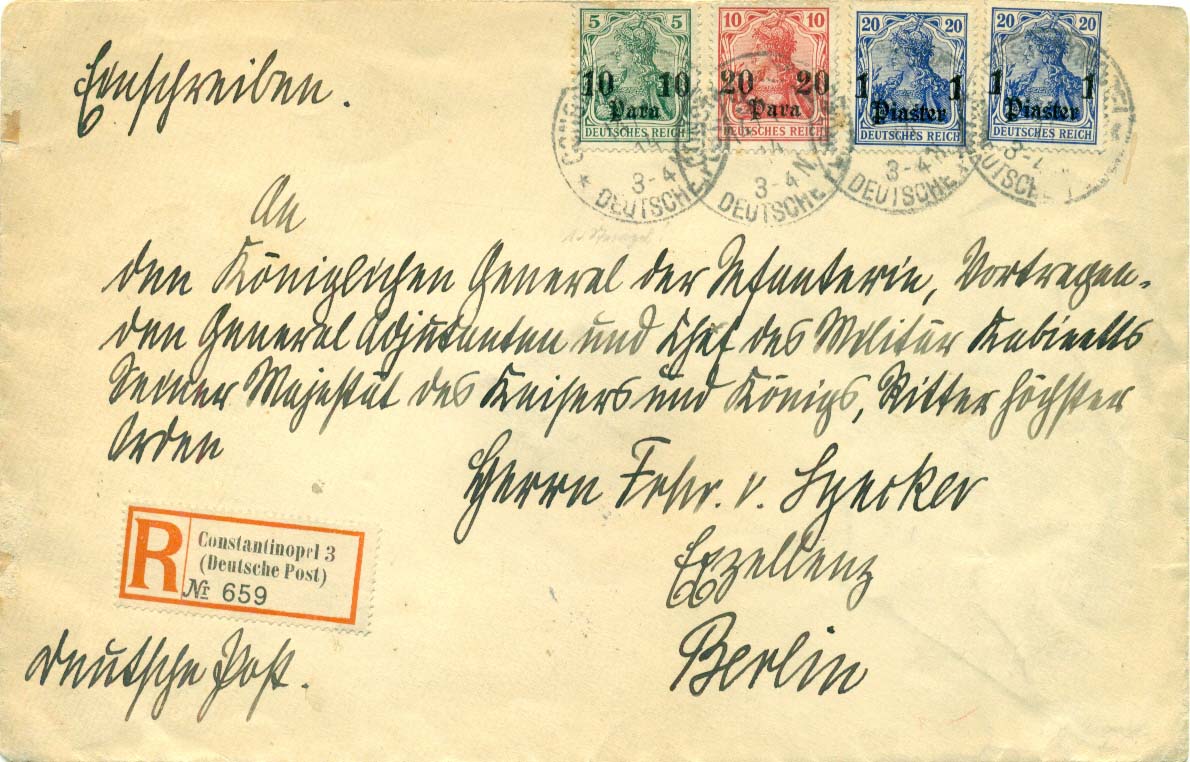 Einschreiben.
5 5
10 10
Para
DEUTSCHES REICH
10 10
20 20
Para
DEUTSCHES REICH
20 20
1 1
Piaster
DEUTSCHES REICH
20 20
1 1
Piaster
DEUTSCHES REICH
14
3-4 N
DEUTSCHE
14
3-4 N
DEUTSCHE
3-4 N
DEUTSCHE
An
den Königlichen General der Infanterie, Vortragen-
den General Adjutanten und Chef des Militär Kabinetts
Seiner Majestät des Kaisers und Königs, Ritter höchster
Orden
Herrn Frhr. v. Lyncker
Exzellenz
Berlin
R
Constantinopel 3
(Deutsche Post)
Nr 659
Deutsche Post.